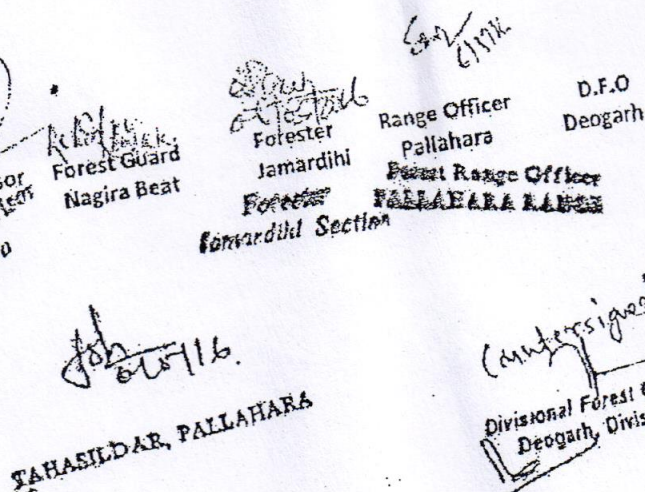 Forest Guard
Nagira Beat
Forester
Jamardihi
Forester
Jamardihi Section
Range Officer
Pallahara
Forest Range Officer
PALLAHARA RANGE
D.F.O
Deogarh
TAHASILDAR, PALLAHARA
Countersigned
Divisional Forest
Deogarh, Divis